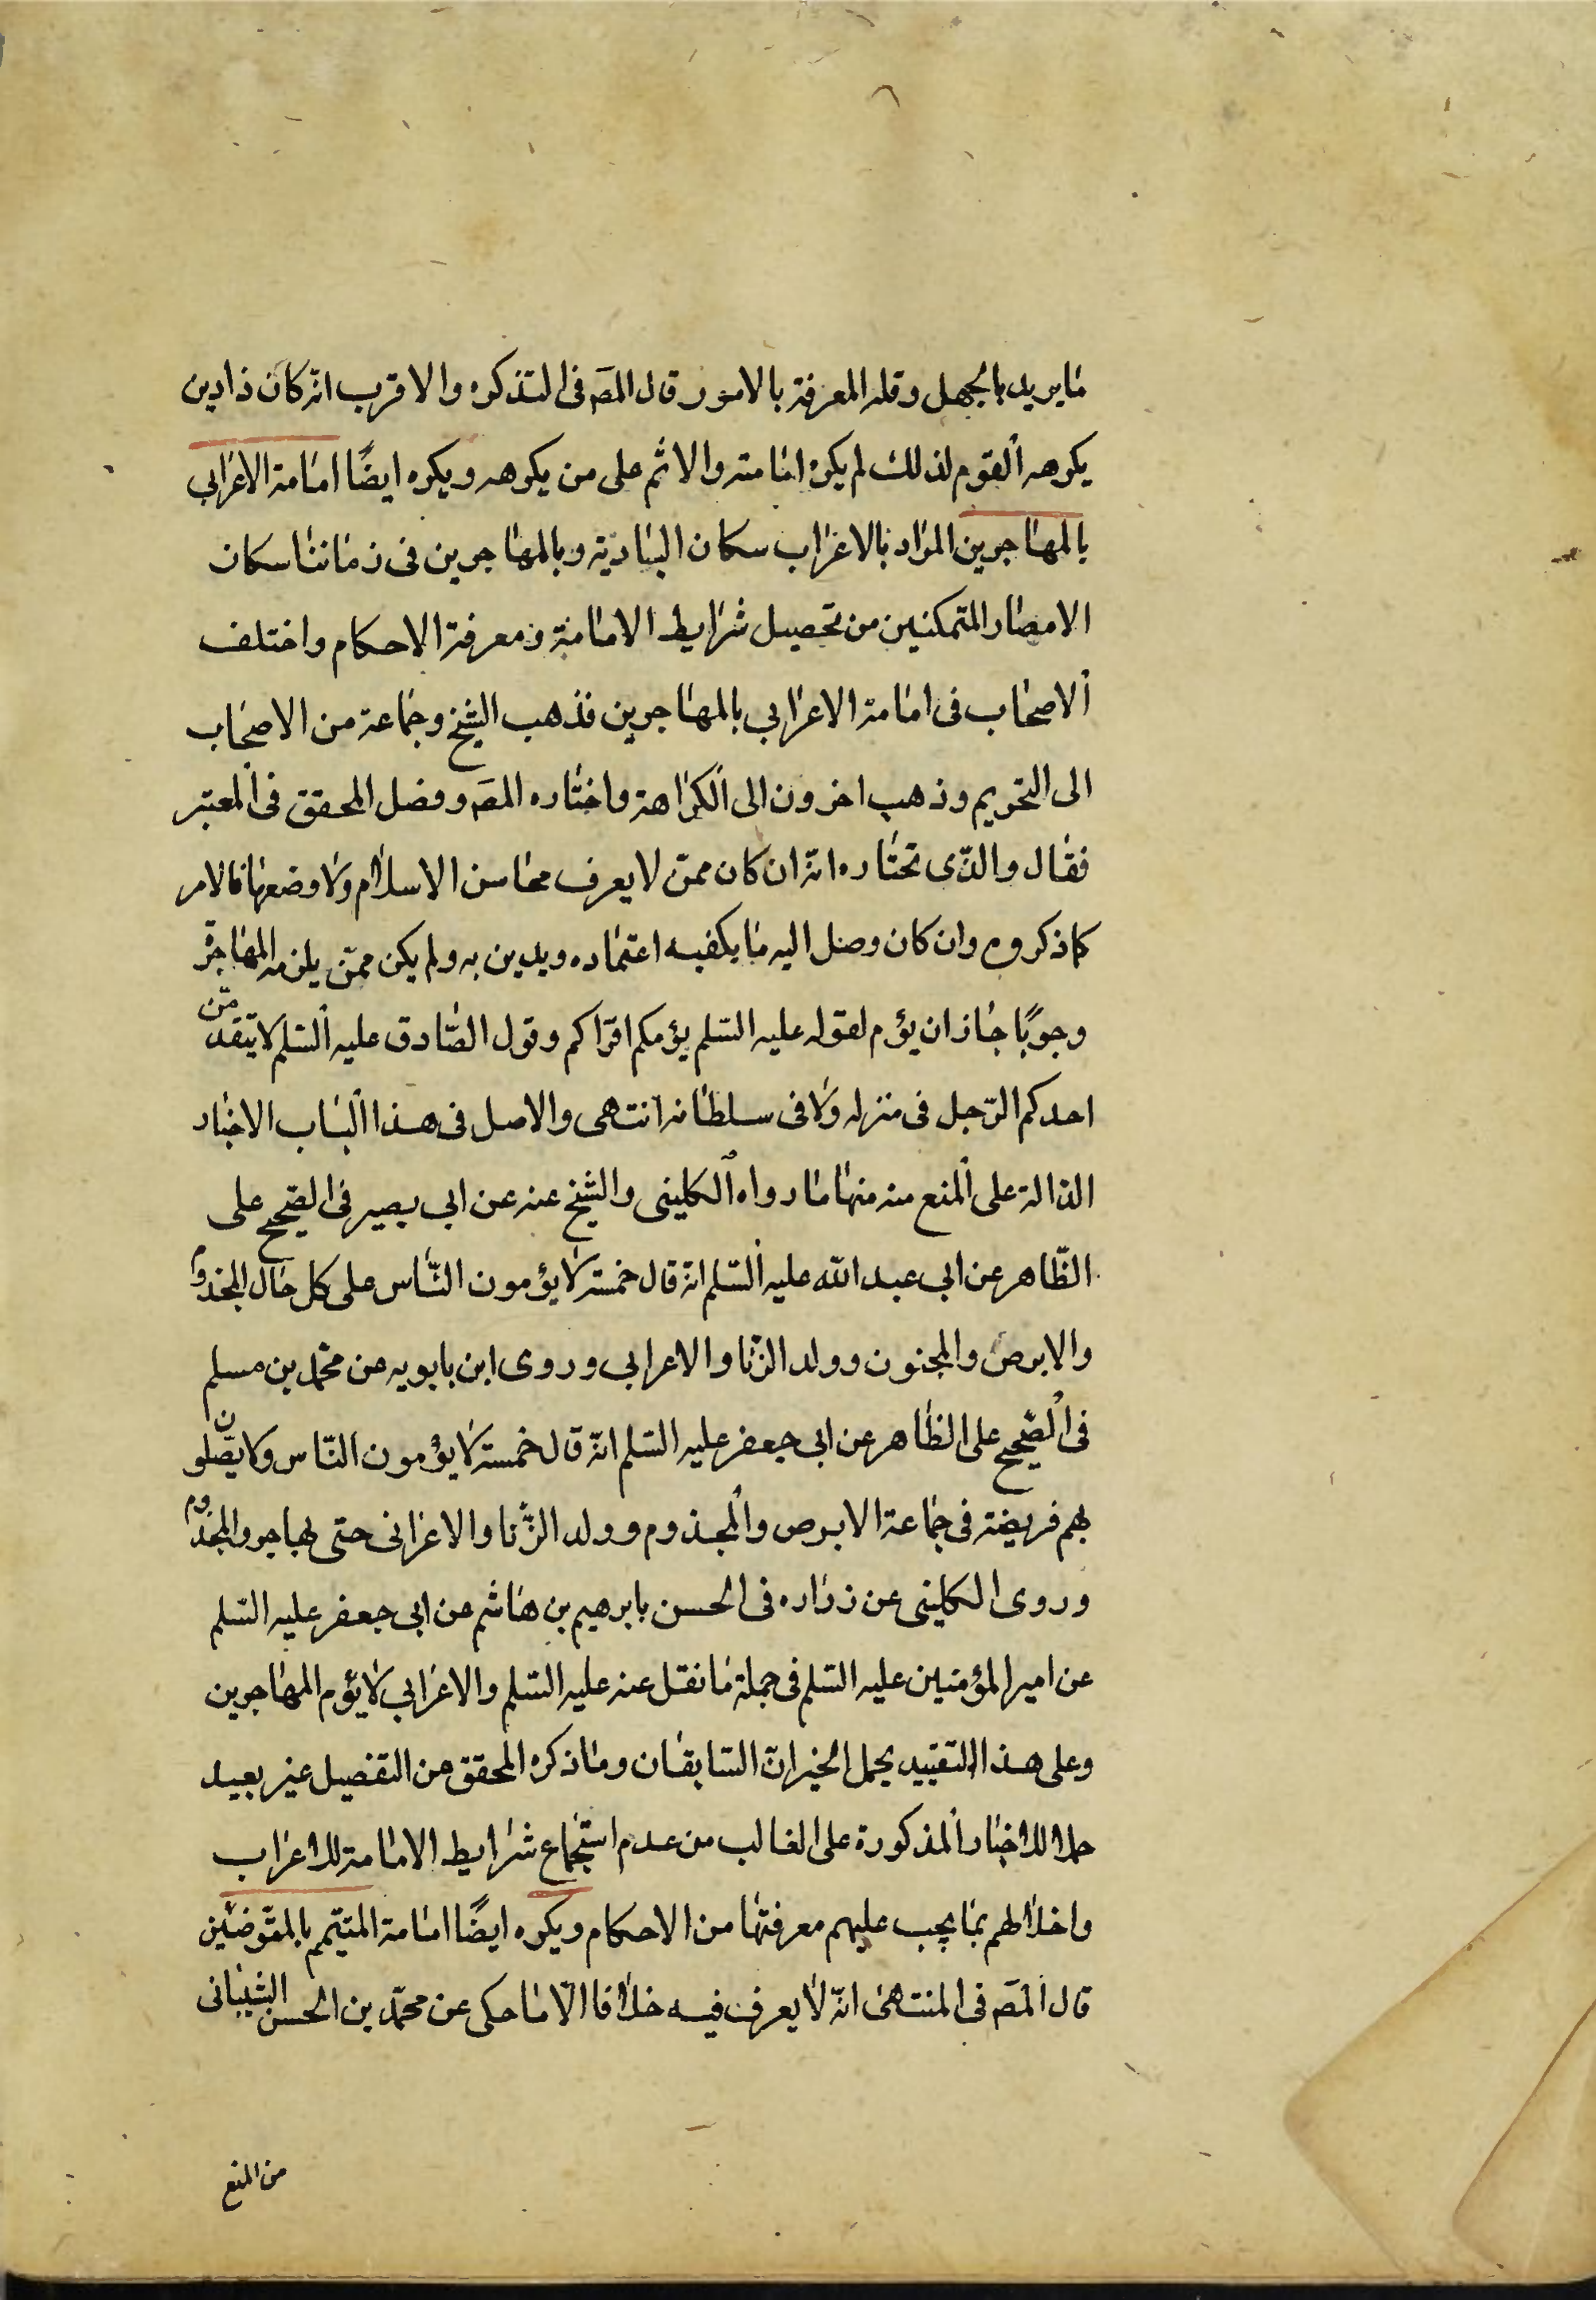 ما يريد بالجهل وقلة المعرفة بالامور قال المص في التذكره والاقرب انه كان ذا دين
يكرهه القوم لذلك لم يكره امامته والاثم على من يكرهه ويكره ايضًا امامة الاعرابي
بالمهاجرين المراد بالاعراب سكان البادية وبالمهاجرين في زماننا سكان
الامصار المتمكنين من تحصيل شرايط الامامة ومعرفة الاحكام واختلف
الاصحاب في امامة الاعرابي بالمهاجرين فذهب الشيخ وجماعة من الاصحاب
الى التحريم وذهب اخرون الى الكراهة واختاره المص وفصل المحقق في المعتبر
فقال والذى نختاره انه ان كان ممن لا يعرف محاسن الاسلام ولا وضعها فالامر
كما ذكروه وان كان وصل اليه ما يكفيه اعتماده ويدين به ولم يكن ممن يلزمه المهاجرة
وجوبًا جاز ان يؤم لقوله عليه السلم يؤمكم اقرأكم وقول الصادق عليه السلم لا يتقدمن
احدكم الرجل في منزله ولا في سلطانه انتهى والاصل في هذا الباب الاخبار
الدالة على المنع منه منها ما رواه الكليني والشيخ عنه عن ابي بصير في الصحيح على
الظاهر عن ابي عبد الله عليه السلم انه قال خمسة لا يؤمون الناس على كل حال المجذوم
والابرص والمجنون وولد الزنا والاعرابي وروى ابن بابويه عن محمد بن مسلم
في الصحيح على الظاهر عن ابي جعفر عليه السلم انه قال خمسة لا يؤمون الناس ولا يصلون
بهم فريضة في جماعة الابرص والمجذوم وولد الزنا والاعرابي حتى يهاجر والمجذوم
وروى الكليني عن زراره في الحسن بابرهيم بن هاشم عن ابي جعفر عليه السلم
عن امير المؤمنين عليه السلم في جملة ما نقل عنه عليه السلم والاعرابي لا يؤم المهاجرين
وعلى هذا التقييد يحمل الخبران السابقان وما ذكره المحقق من التفصيل غير بعيد
حملا للاخبار المذكورة على الغالب من عدم استجماع شرايط الامامة للاعراب
واخلالهم بما يجب عليهم معرفتها من الاحكام ويكره ايضًا امامة المتيمم بالمتوضئين
قال المص في المنتهى انه لا يعرف فيه خلافا الا ما حكى عن محمد بن الحسن الشيباني
من المنع